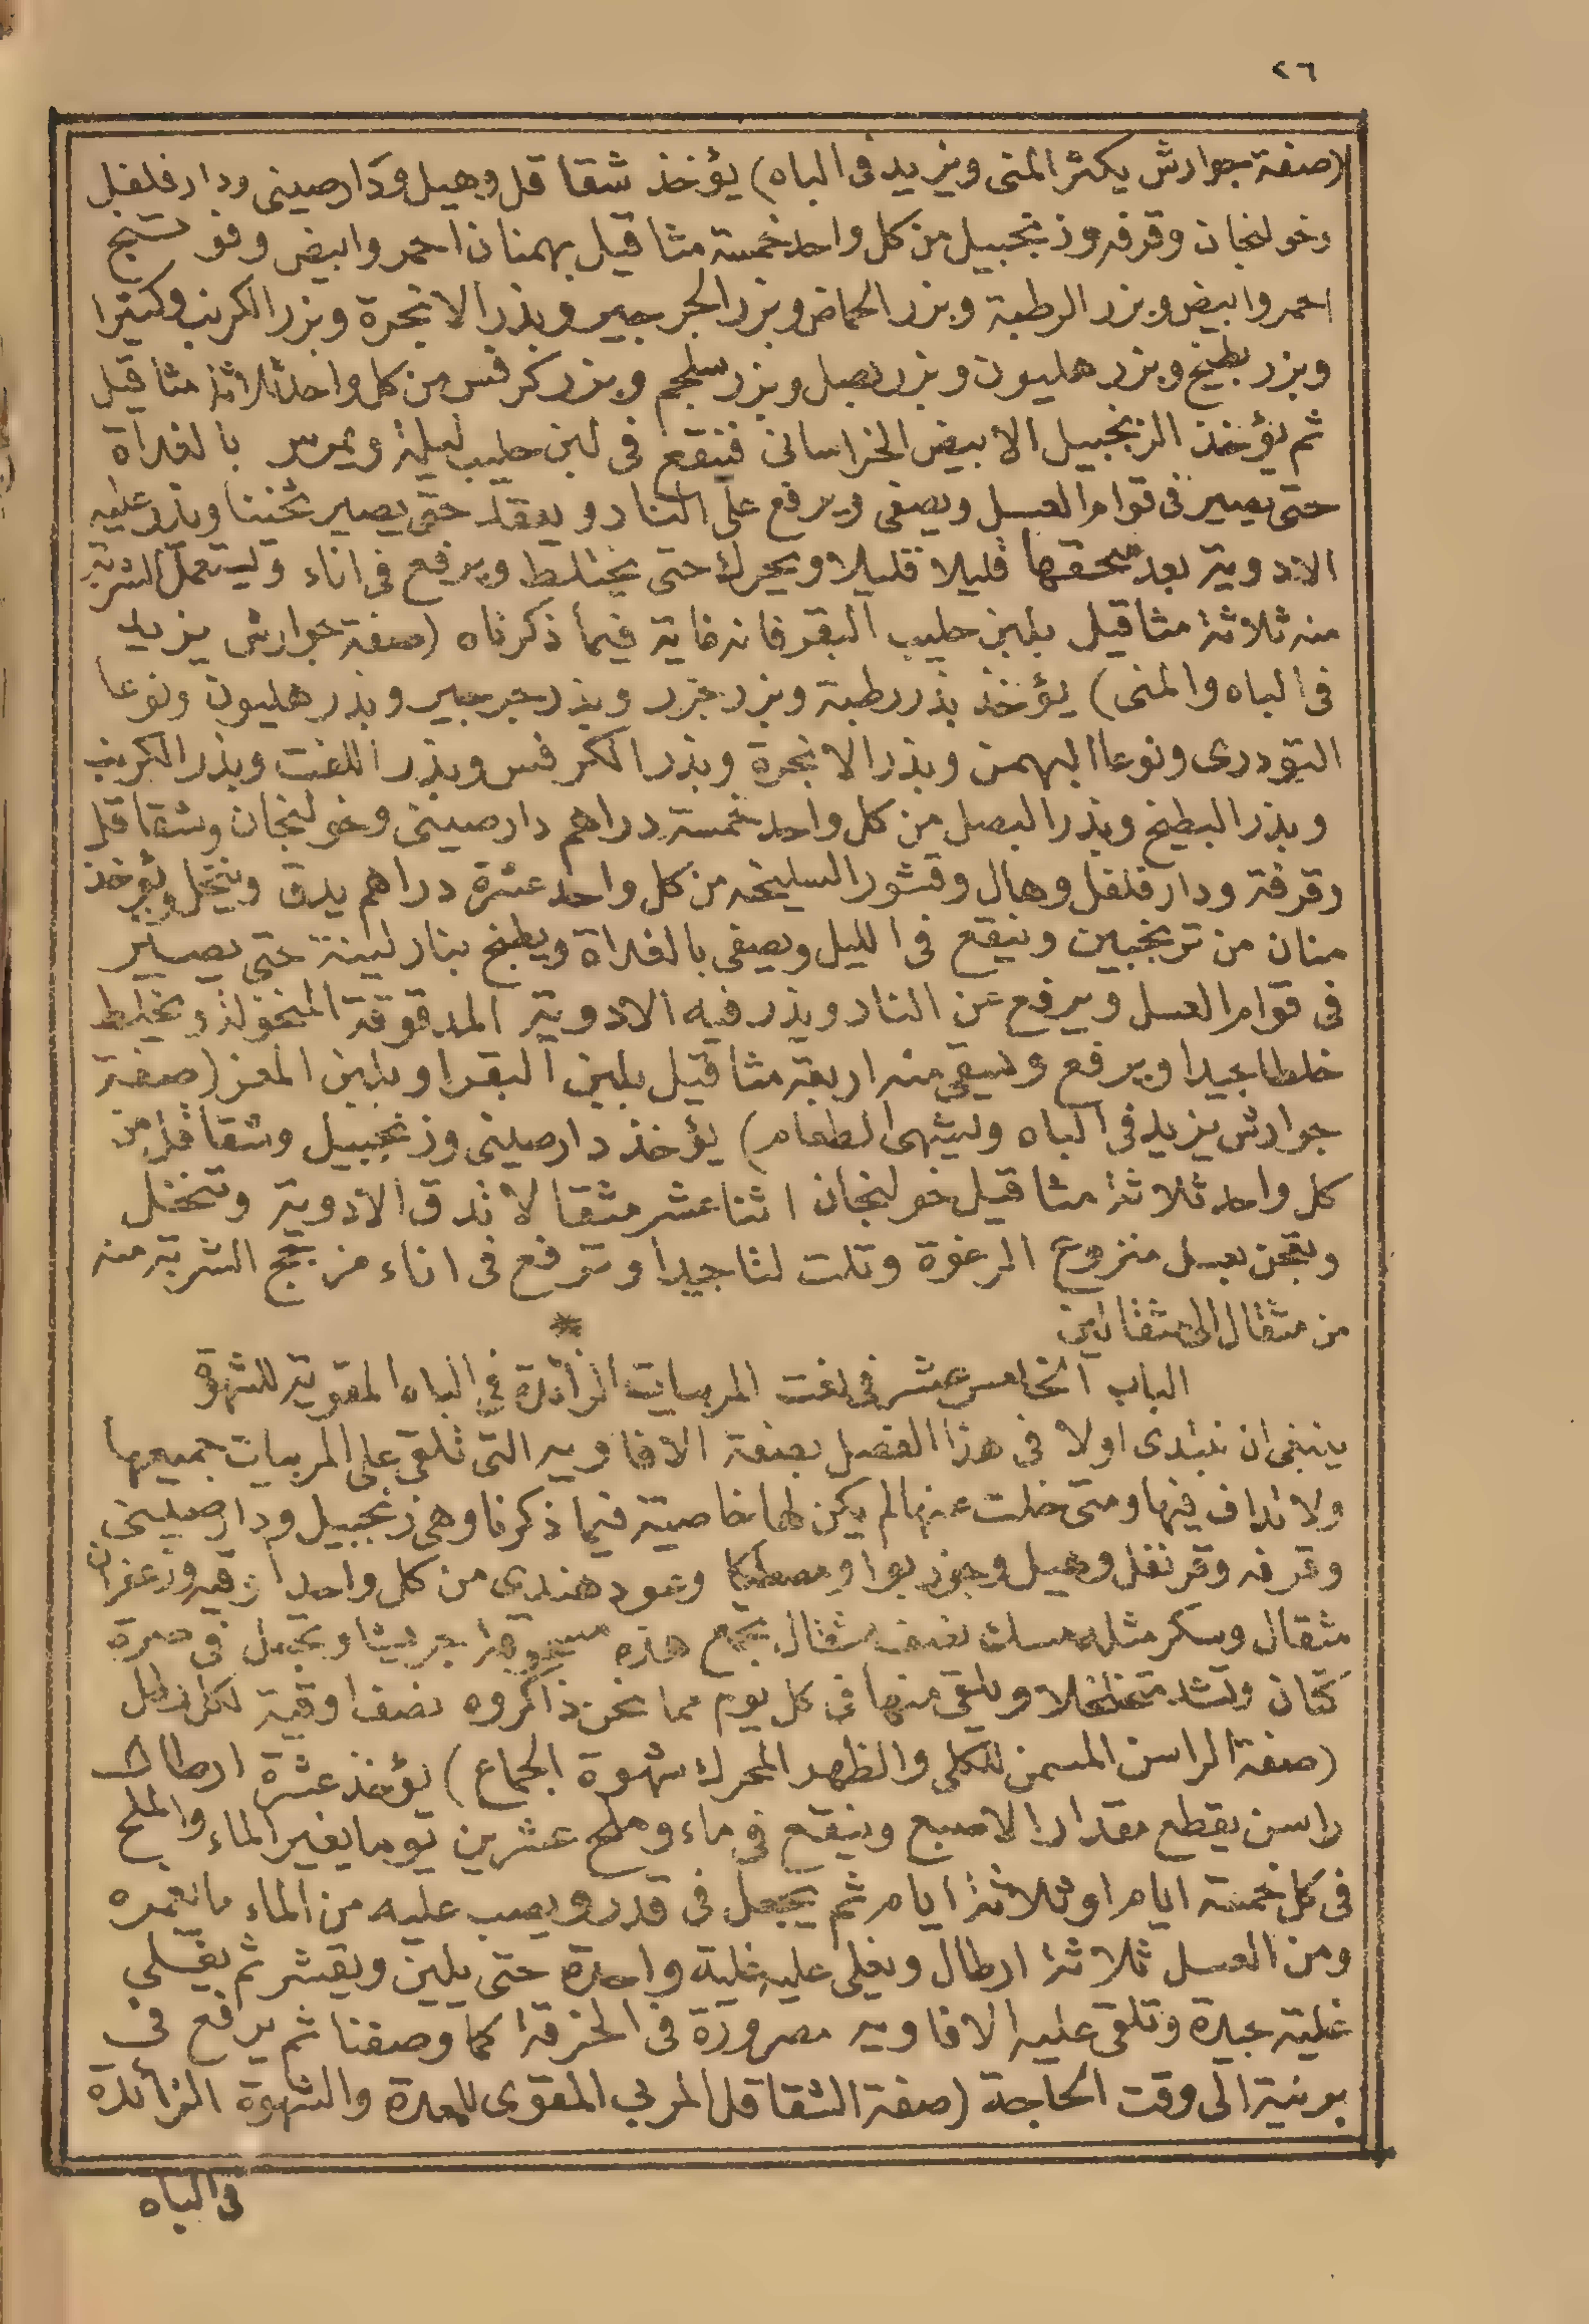 ٢٦
(صفة جوارش يكثر المنى ويزيد فى الباه) يؤخذ شقاقل وهيل ودارصينى ودارفلفل
وخولنجان وقرفه وزنجبيل من كل واحد خمسة مثاقيل بهمنان احمر وابيض
احمر وابيض وبزر الرطبة وبزر الحماض وبزر الجرجير وبذر الانجرة وبزر الكرنب وكثيرا
وبزر بطيخ وبزر هليون وبزر بصل وبزر سلجم وبزر كرفس من كل واحد ثلاثة مثاقيل
ثم يؤخذ الزنجبيل الابيض الخراسانى فينقع فى لبن حليب ليلة ويمرس بالغداة
حتى يصير فى قوام العسل ويصفى ويرفع على النار ويعقد حتى يصير ثخينا ويذر عليه
الادوية بعد سحقها قليلا قليلا ويحرك حتى يختلط ويرفع فى اناء ويستعمل الشربة
منه ثلاثة مثاقيل بلبن حليب البقر فانه غاية فيما ذكرناه (صفة جوارش يزيد
فى الباه والمنى) يؤخذ بذر رطبة وبزر جزر وبذر جرجير وبذر هليون ونوعا
التودرى ونوعا البهمن وبذر الانجرة وبذر الكرفس وبذر اللفت وبذر الكرنب
وبذر البطيخ وبذر البصل من كل واحد خمسة دراهم دارصينى وخولنجان وشقاقل
وقرفة ودارفلفل وهال وقشور السليخه من كل واحد عشرة دراهم يدق وينخل ويؤخذ
منان من ترنجبين وينقع فى الليل ويصفى بالغداة ويطبخ بنار لينة حتى يصير
فى قوام العسل ويرفع عن النار ويذر فيه الادوية المدقوقة المنخولة ويخلط
خلطا جيدا ويرفع ويسقى منه اربعة مثاقيل بلبن البقر او بلبن المعز (صفة
جوارش يزيد فى الباه ويشهى الطعام) يؤخذ دارصينى وزنجبيل وشقاقل من
كل واحد ثلاثة مثاقيل خولنجان اثنا عشر مثقالا تدق الادوية وتنخل
وتعجن بعسل منزوع الرغوة وتلت لتا جيدا وترفع فى اناء مزجج الشربة منه
من مثقال الى مثقالين
الباب الخامس عشر فى نعت المربيات الزائدة فى الباه المقوية للشهوة
ينبغى ان نبتدى اولا فى هذا الفصل بصفة الافاويه التى تلقى على المربيات جميعها
ولا تداف فيها ومتى خلت عنها لم يكن لها خاصية فيما ذكرنا وهى زنجبيل ودارصينى
وقرفه وقرنفل وهيل وجوز بوا ومصطكا وعود هندى من كل واحد اوقيه وزعفران
مثقال وسكر مثله مسك نصف مثقال يجمع هذه مسحوقها جريشا ويجعل فى صرة
كتان وتشد متخلخلا ويلقى منها فى كل يوم مما نحن ذاكروه نصف اوقية لكل رطل
(صفة الراسن المسمن للكلى والظهر المحرك شهوة الجماع) يؤخذ عشرة ارطال
راسن يقطع مقدار الاصبع وينقع فى ماء وملح عشرين يوما يغير الماء والملح
فى كل خمسة ايام او ثلاثة ايام ثم يجعل فى قدر ويصب عليه من الماء ما يغمره
ومن العسل ثلاثة ارطال ويغلى عليه غلية واحدة حتى يلين ويقشر ثم يغلى
غلية جيدة وتلقى عليه الافاويه مصرورة فى الخرقة كما وصفنا ثم يرفع فى
برنية الى وقت الحاجة (صفة الشقاقل المربى المقوى للمعدة والشهوة الزائدة
فى الباه